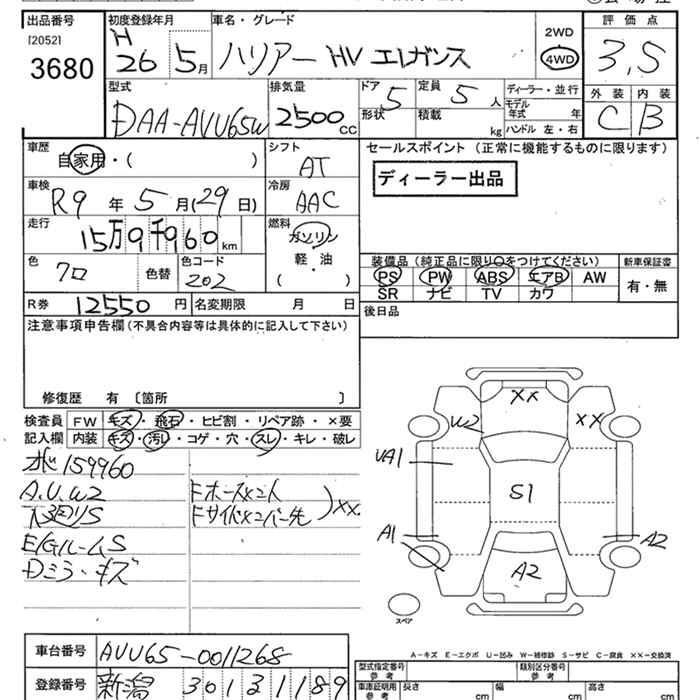 出品番号 初度登録年月 車名・グレード 評価点
[2052] H 2WD
3680 26 5月 ハリアー HV エレガンス 4WD 3,5
外装 内装
型式 排気量 ドア 5 定員 5人 ディーラー・並行 C B
DAA-AVU65W 2500cc 形状 積載 kg モデル年式 年
ハンドル 左・右
車歴 シフト セールスポイント (正常に機能するものに限ります)
自家用・( ) AT
ディーラー出品
車検 冷房
R9年5月(29日) AAC
走行 燃料
15万9千960km ガソリン
軽・油
( )
装備品(純正品に限り○をつけてください) 新車保証書
色 色替 色コード PS PW ABS エアB AW 有・無
クロ 202 SR ナビ TV カワ
R券 12550円 名変期限 月 日 後日品
注意事項申告欄(不具合内容等は具体的に記入して下さい)
修復歴 有 〔箇所 〕
検査員 FW キズ・飛石・ヒビ割・リペア跡・×要
記入欄 内装 キズ・汚れ・コゲ・穴・スレ・キレ・破レ
159960
A.U.W2
下廻りS
E/GルームS
Dミラーキズ
XX
XX
W2
XX
UA1
S1
A1
A2
A2
スペア
車台番号 AVU65-0011268
登録番号 新潟 301 31189
A-キズ E-エクボ U-凹み W-補修跡 S-サビ C-腐食 XX-交換済
型式指定番号 参考 類別区分番号 参考
車庫証明用 参考 長さ cm 幅 cm 高さ cm